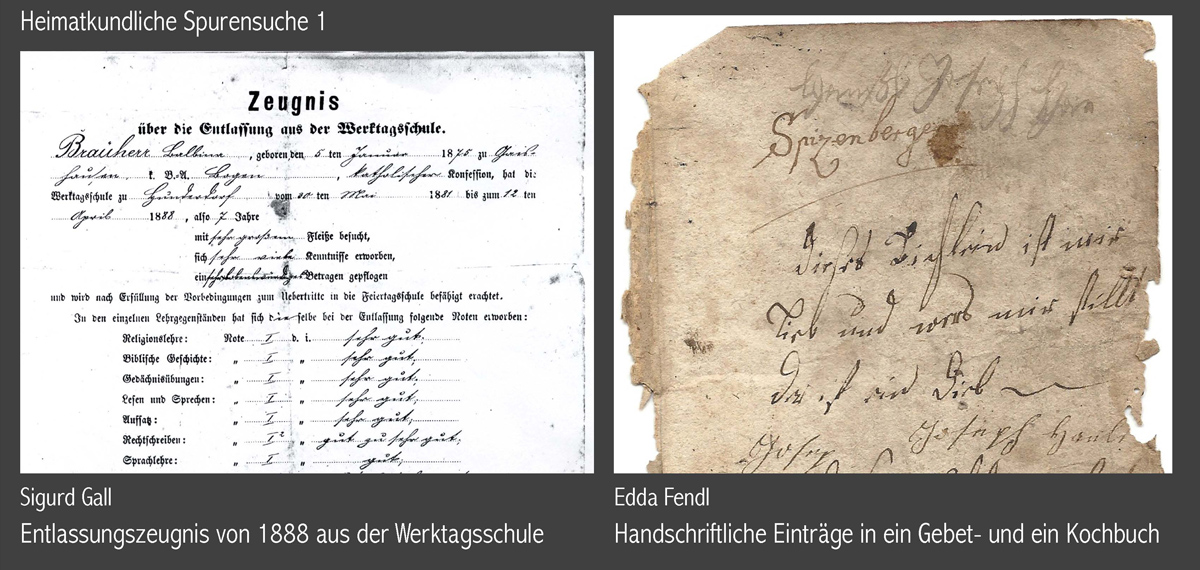 Heimatkundliche Spurensuche 1
Zeugnis
über die Entlassung aus der Werktagsschule.
Brauherr Balbina, geboren den 5 ten Januar 1875 zu Gais-
hausen k. B.-A. Bogen, katholischer Konfession, hat die
Werktagsschule zu Hunderdorf vom 30 ten Mai 1881 bis zum 12 ten
April 1888, also 7 Jahre
mit sehr großem Fleiße besucht,
sich sehr viele Kenntnisse erworben,
ein sehr lobenswürdiges Betragen gepflogen
und wird nach Erfüllung der Vorbedingungen zum Uebertritte in die Feiertagsschule befähigt erachtet.
In den einzelnen Lehrgegenständen hat sich dieselbe bei der Entlassung folgende Noten erworben:
Religionslehre: Note I d. i. sehr gut;
Biblische Geschichte: „ I „ sehr gut;
Gedächnisübungen: „ I „ sehr gut;
Lesen und Sprechen: „ I „ sehr gut;
Aufsatz: „ I „ sehr gut;
Rechtschreiben: „ I² „ gut zu sehr gut;
Sprachlehre: „ „ gut;
Sigurd Gall
Entlassungszeugnis von 1888 aus der Werktagsschule
Joseph
Spizenberger
Dieses Biechlein ist mir
lieb und wers mir stillt
der ist ein Dieb
Josep Joseph
Edda Fendl
Handschriftliche Einträge in ein Gebet- und ein Kochbuch